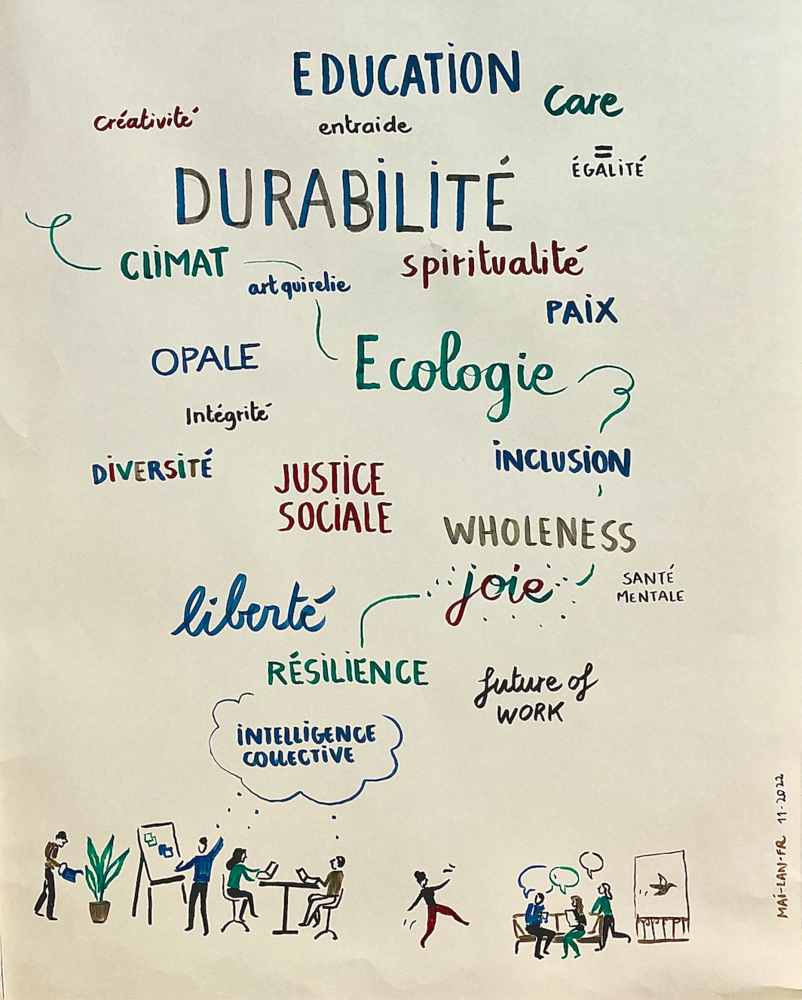 EDUCATION
Care
créativité
entraide
=
ÉGALITÉ
DURABILITÉ
CLIMAT
art qui relie
spiritualité
PAIX
OPALE
Ecologie
Intégrité
DIVERSITÉ
JUSTICE
SOCIALE
INCLUSION
WHOLENESS
joie
SANTÉ
MENTALE
liberté
RÉSILIENCE
future of
WORK
INTELLIGENCE
COLLECTIVE
MAI-LAN.FR 11-2022